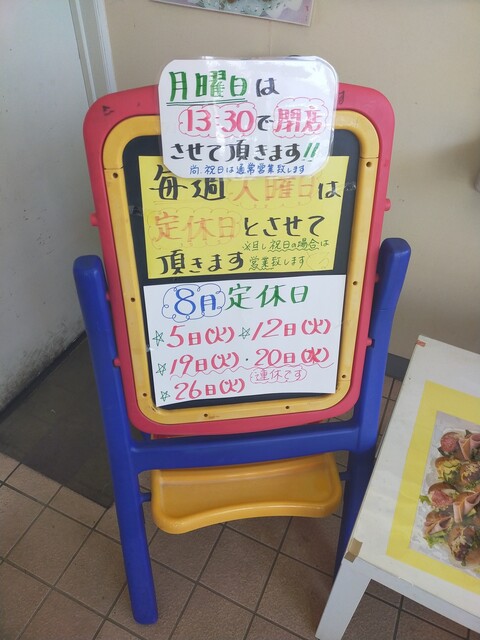 月曜日は
13:30で閉店
させて頂きます!!
尚、祝日は通常営業致します
毎週火曜日は
定休日とさせて
※但し祝日の場合は
頂きます 営業致します
8月定休日
☆5日(火)☆12日(火)
☆19日(火)・20日(水)
☆26日(火) 連休です